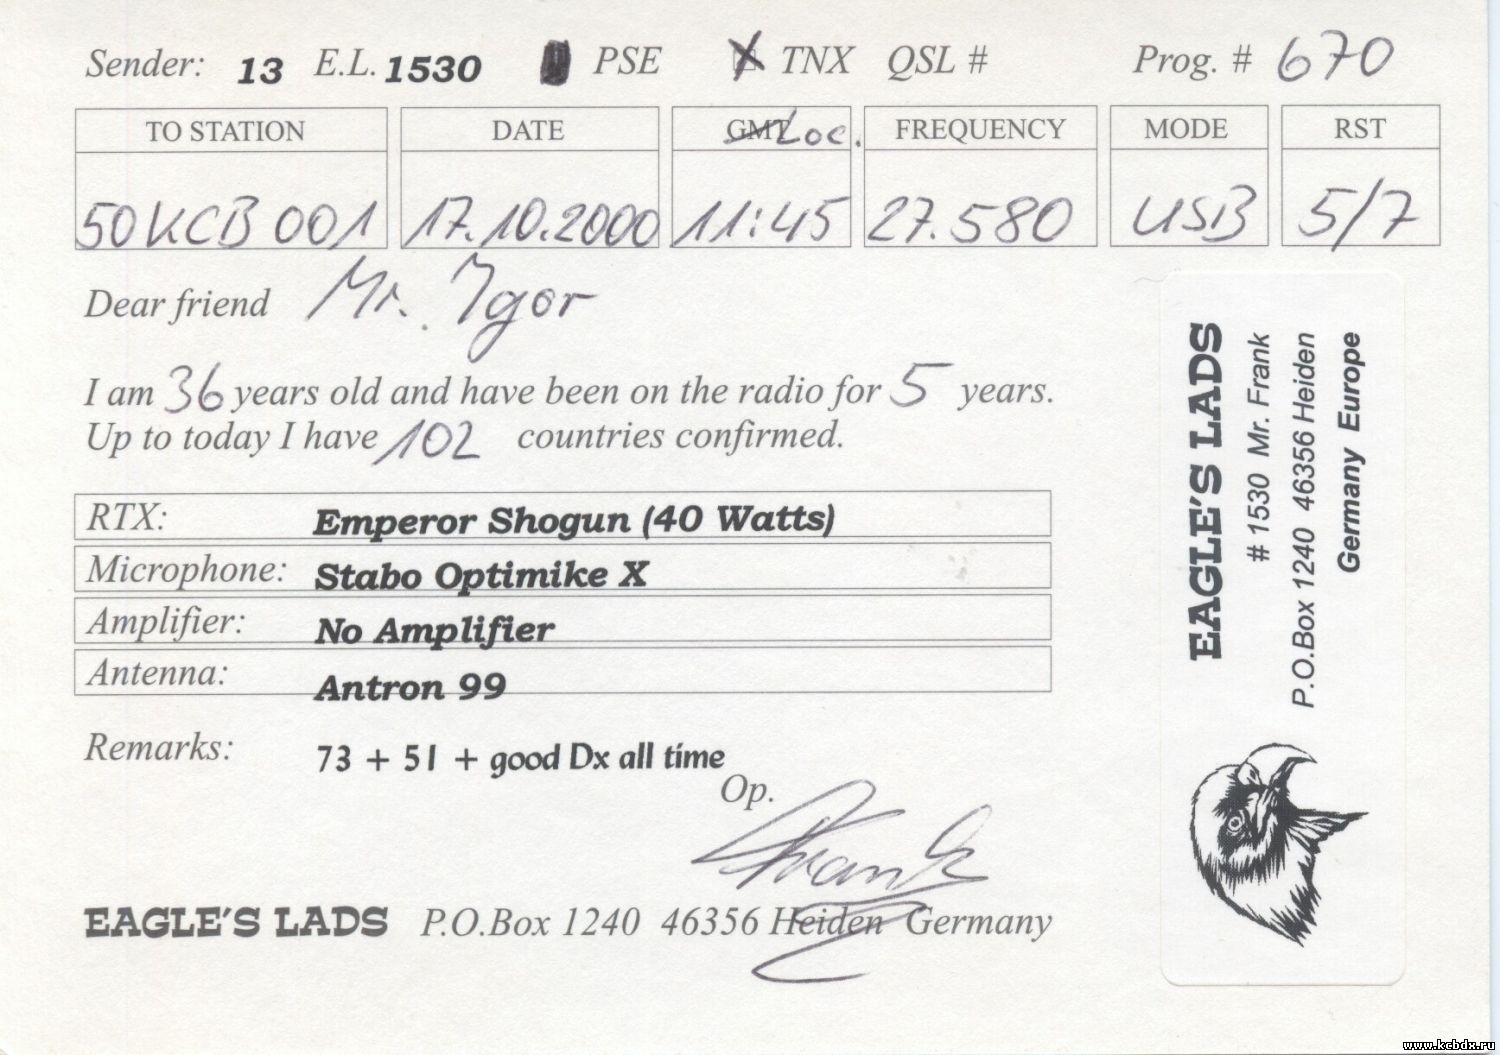 Sender: 13 E.L. 1530 PSE X TNX QSL # Prog. # 670
TO STATION DATE GMT Loc. FREQUENCY MODE RST
50 KCB 001 17.10.2000 11:45 27.580 USB 5/7
Dear friend Mr. Igor
I am 36 years old and have been on the radio for 5 years.
Up to today I have 102 countries confirmed.
RTX: Emperor Shogun (40 Watts)
Microphone: Stabo Optimike X
Amplifier: No Amplifier
Antenna: Antron 99
Remarks: 73 + 51 + good Dx all time
Op.
Frank
EAGLE'S LADS P.O.Box 1240 46356 Heiden Germany
EAGLE'S LADS
# 1530 Mr. Frank
P.O.Box 1240 46356 Heiden
Germany Europe
www.kcbdx.ru